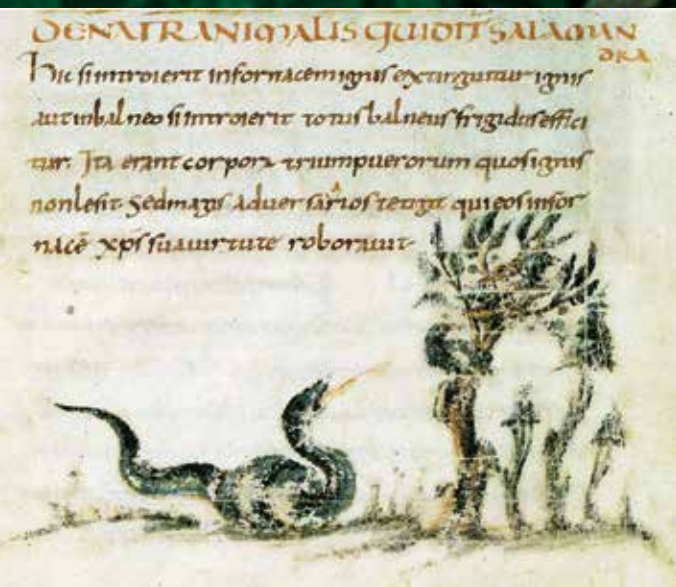 DENATRANIMALISQUIDITSALAMAN
DRA
Hic siintroierit infornacemignis extinguitur ignis
autinbalneo siintroierit totus balneus frigidus effici
tur. Ita erant corpora trium puerorum quos ignis
nonlesit. Sed magis aduersarios tetigit qui eos infor
nacē xps sua uirtute roborauit